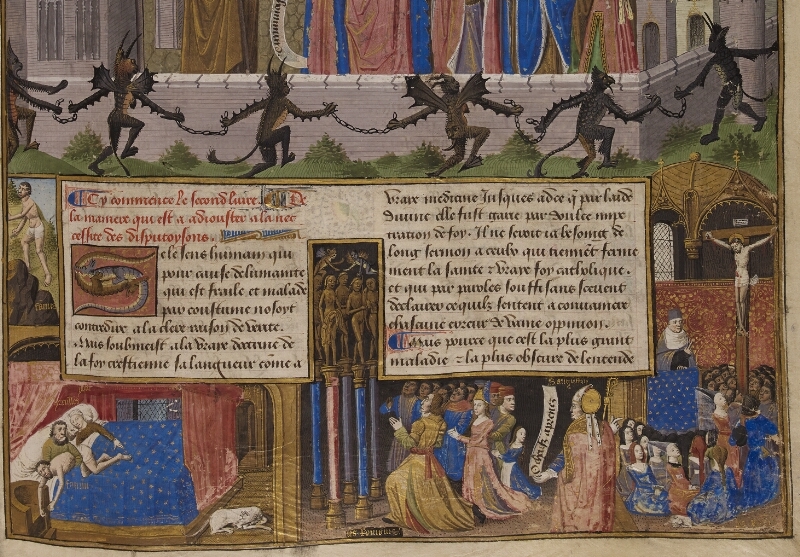 Cy commence le second liure. De
la maniere qui est a adiouster a la nec
cessite des disputoysons.
Se le sens humain qui
pour cause de lumanite
qui est fraile et malade
par coustume nosoyt
contredire a la clere raison de verite.
Mais soubmeist a la vraye doctrine de
la foy crestienne sa langueur come a
vraye medicine Jusques adce q par laide
diuine elle fust garie par doulce impe
tration de foy. Il ne seroit ia besoing de
long sermon a ceulx qui tiennent ferme
ment la sainte et vraye foy catholique.
et qui par paroles souffisans sceuent
desclairer ce quilz sentent a conuaincre
chascune erreur de vaine opinion.
Mais pource que cest la plus grant
maladie et la plus obscure de lentende